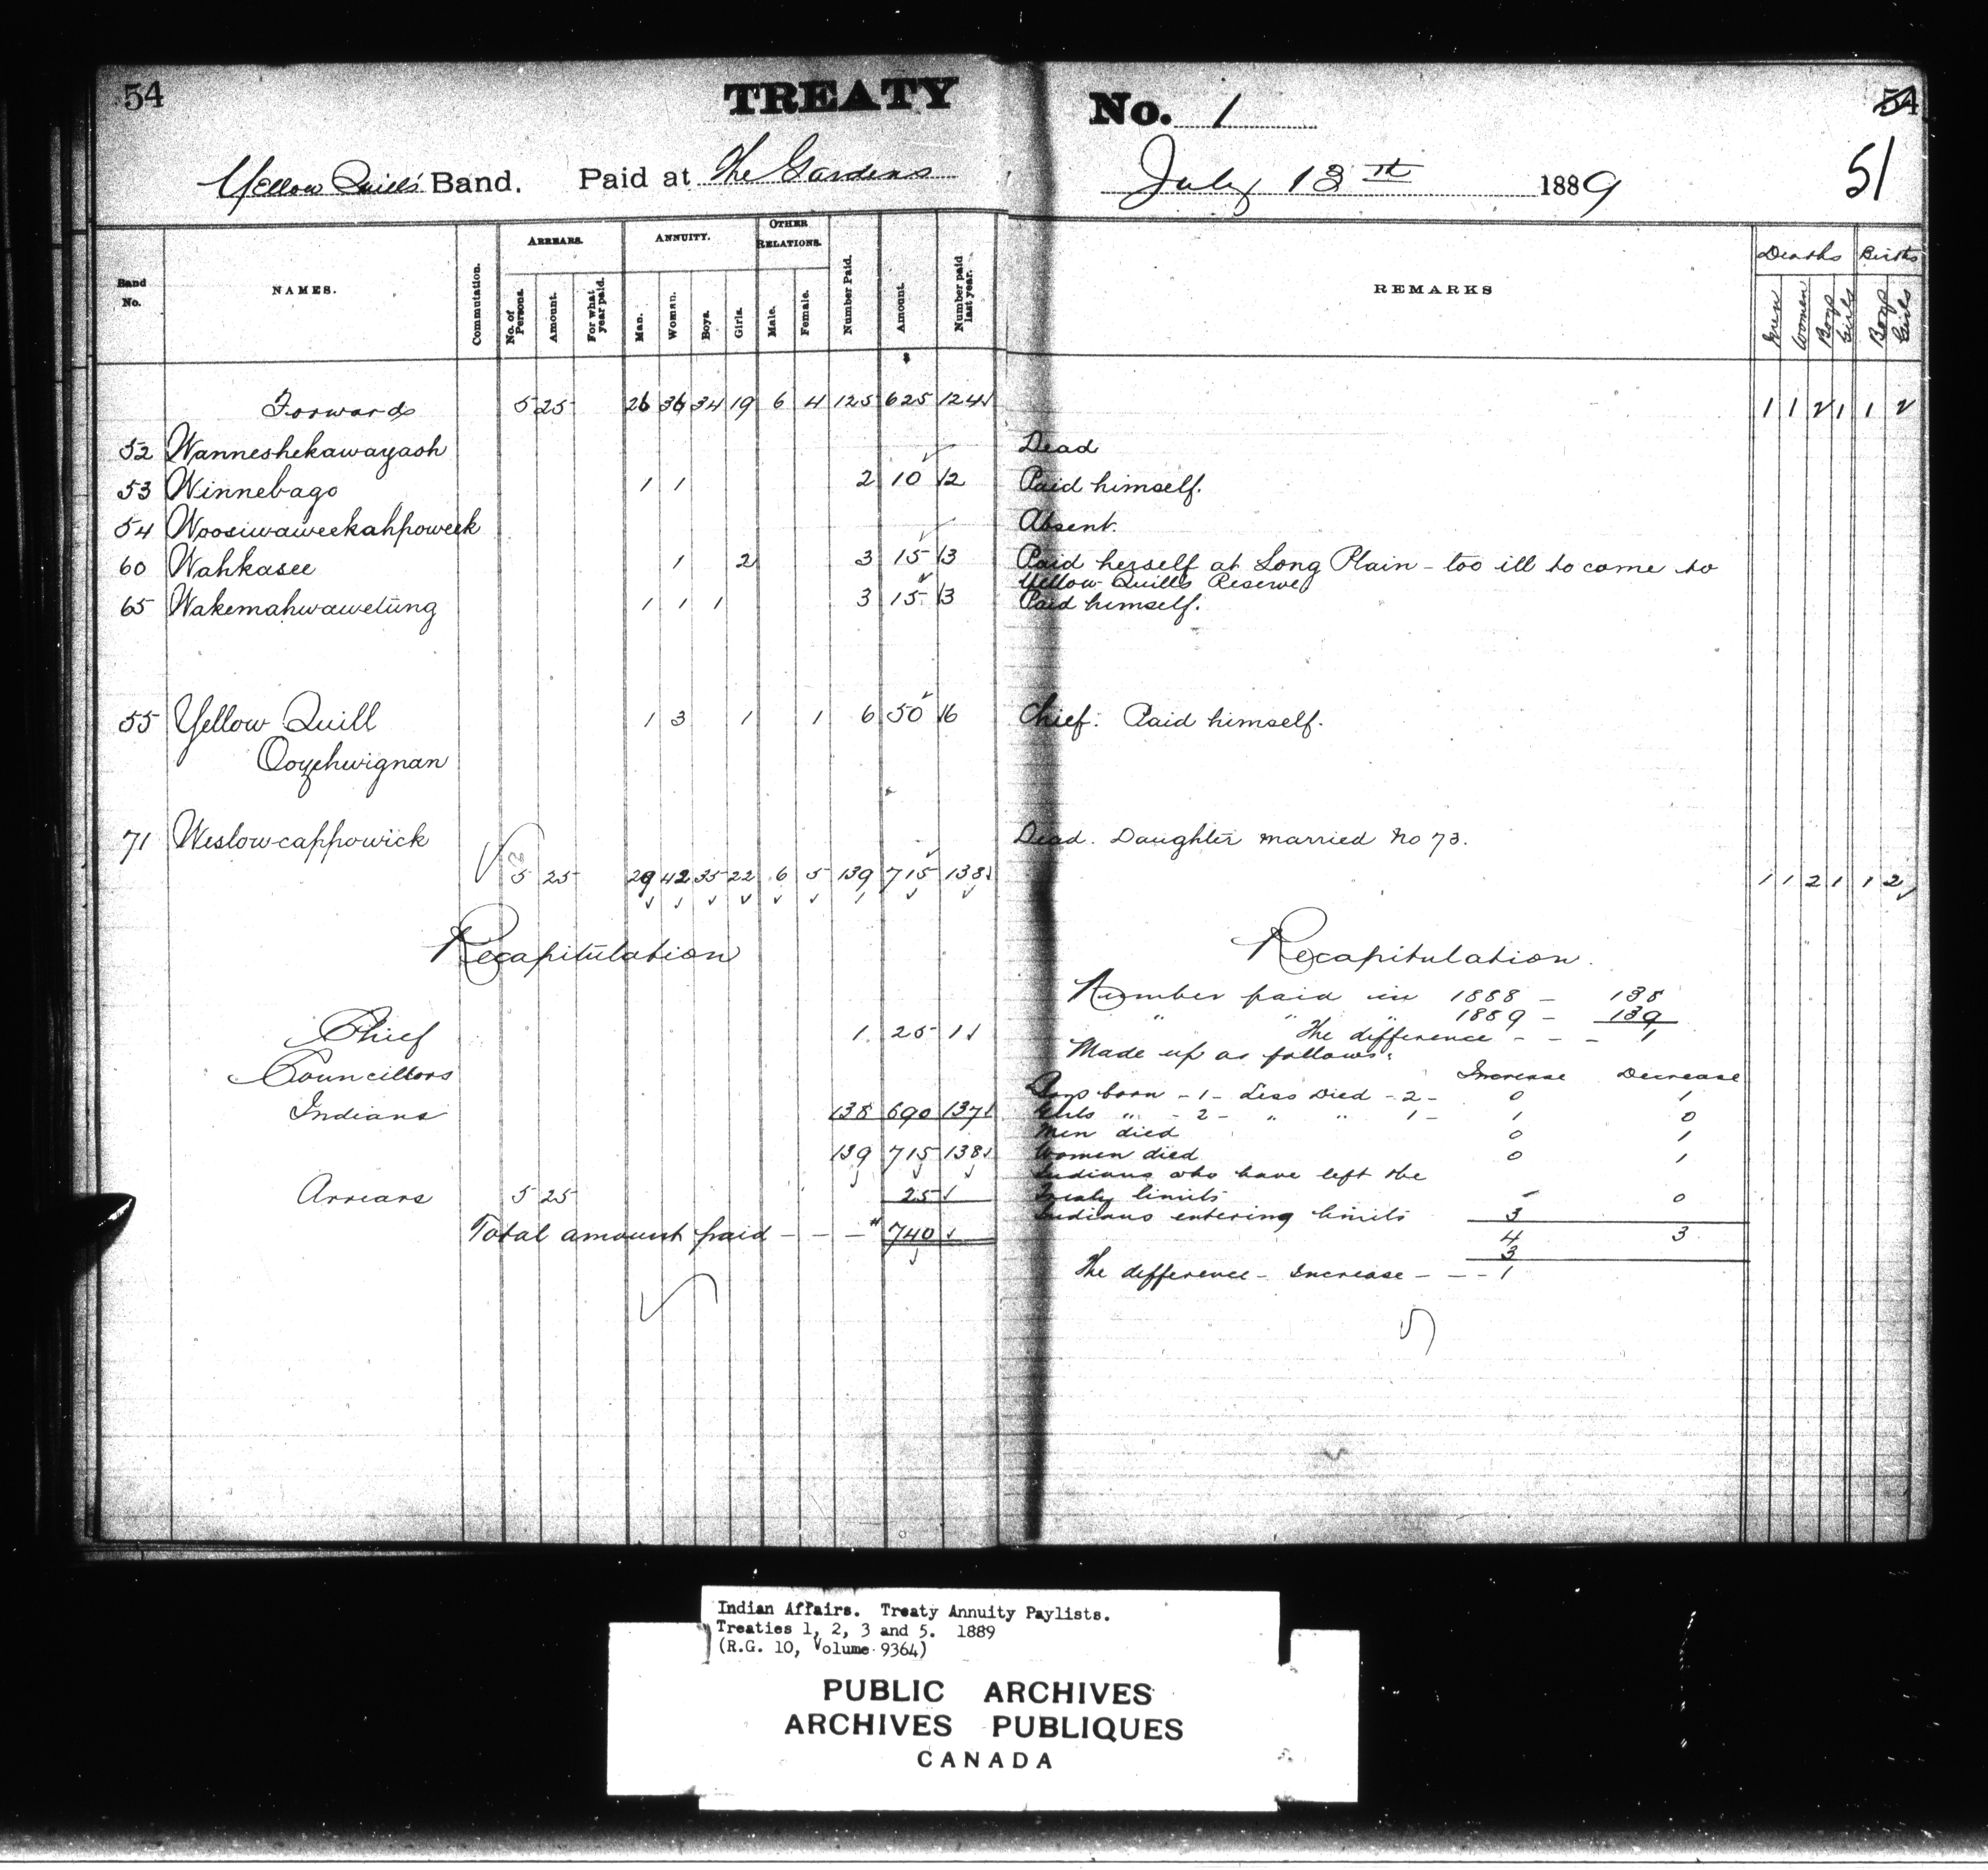 54 TREATY No. 1 54
51
Yellow Quill's Band. Paid at The Gardens July 13th 1889
Band No. NAMES. Commutation. ARREARS. No. of Persons. Amount. For what year paid. ANNUITY. Man. Woman. Boys. Girls. OTHER RELATIONS. Male. Female. Number Paid. Amount. Number paid last year. REMARKS Deaths Men Women Boys Girls Births Boys Girls
Forwards 5 25 26 36 34 19 6 4 125 625 124 1 1 2 1 1 2
52 Wanneshekawayash Dead
53 Winnebago 1 1 2 10 2 Paid himself.
54 Woosiwaweekahpoweek Absent.
60 Wahkasee 1 2 3 15 3 Paid herself at Long Plain - too ill to come to
Yellow Quills Reserve
65 Wakemahwawetung 1 1 1 3 15 3 Paid himself.
55 Yellow Quill 1 3 1 1 6 50 6 Chief. Paid himself.
71 Weslowcappowick Dead. Daughter married No 73.
5 25 29 42 35 22 6 5 139 715 138 1 1 2 1 1 2
Recapitulation
Chief 1 25 1
Councillors
Indians 138 690 137
139 715 138
Arrears 5 25 25
Total amount paid - - - " 740
Recapitulation.
Number paid in 1888 - 138
" " " 1889 - 139
The difference - - - 1
Made up as follows:
Increase Decrease
Boys born - 1 - Less Died - 2 - 0 1
Girls " - 2 - " " 1 - 1 0
Men died 0 1
Women died 0 1
Indians who have left the
Treaty limits - 0
Indians entering limits 3
4 3
3
The difference - Increase - - - 1
Indian Affairs. Treaty Annuity Paylists.
Treaties 1, 2, 3 and 5. 1889
(R.G. 10, Volume 9364)
PUBLIC ARCHIVES
ARCHIVES PUBLIQUES
CANADA